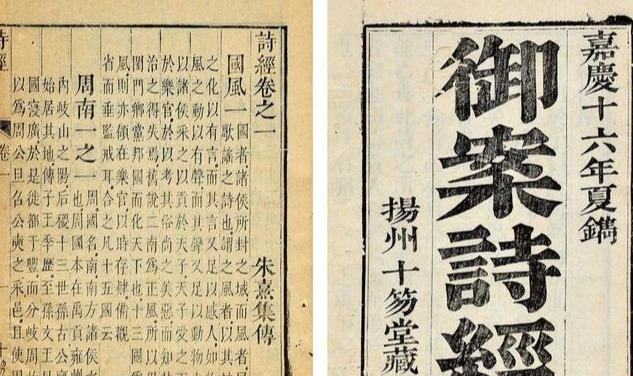 嘉慶十六年夏鐫
御案詩經
揚州十笏堂藏
詩經卷之一 朱熹集傳
國風一 國者諸侯所封之域而風者
歌謠之詩也謂之風者以其
之化以有言而其言又足以感人如
風之動以有聲而其聲又足以動物
以諸侯采之以貢於天子天子受之
於樂官於以考其俗尚之美惡而知
治之得失焉舊說二南爲正風所以
閨門鄉黨邦國而化天下也十三國
風則亦領在樂官以時存肄備觀
省而垂監戒耳合之凡十五國云
周南一之一 周國名南南方諸侯
也周國本在禹貢雍
內岐山之陽后稷十三世孫古公
始居其地傳子王季歷至孫文王
國寖廣於是徙都于豐而分岐周
以爲周公旦召公奭之采邑且使
詩經 卷一